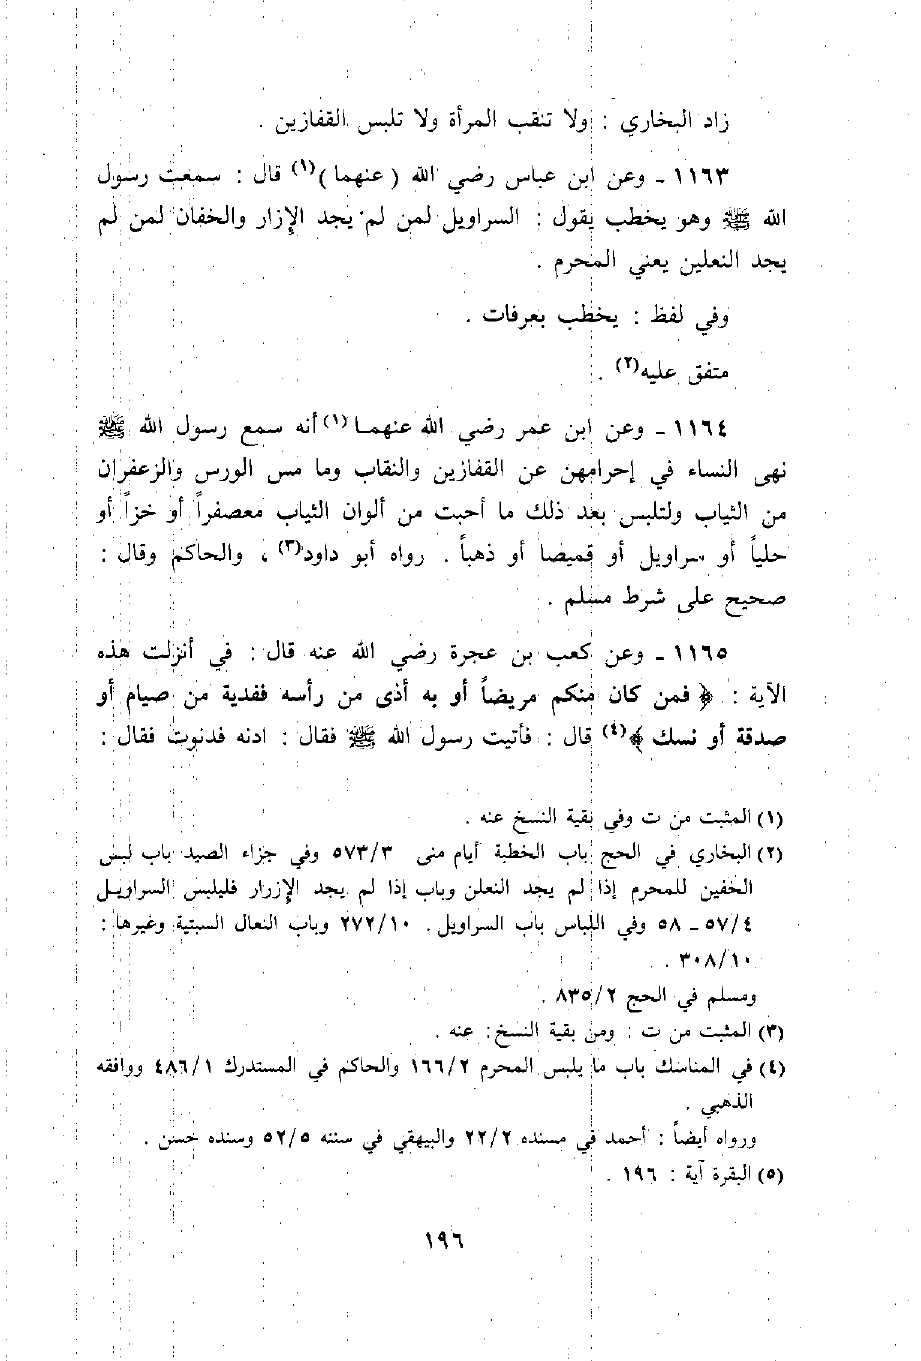 زاد البخاري : ولا تنقب المرأة ولا تلبس القفازين .
١١٦٣ ـ وعن ابن عباس رضي الله ( عنهما )(١) قال : سمعت رسول
الله ﷺ وهو يخطب يقول : السراويل لمن لم يجد الإزار والخفان لمن لم
يجد النعلين يعني المحرم .
وفي لفظ : يخطب بعرفات .
متفق عليه(٢) .
١١٦٤ ـ وعن ابن عمر رضي الله عنهما(١) أنه سمع رسول الله ﷺ
نهى النساء في إحرامهن عن القفازين والنقاب وما مس الورس والزعفران
من الثياب ولتلبس بعد ذلك ما أحبت من ألوان الثياب معصفراً أو خزاً أو
حلياً أو سراويل أو قميصا أو ذهباً . رواه أبو داود(٣) ، والحاكم وقال :
صحيح على شرط مسلم .
١١٦٥ ـ وعن كعب بن عجرة رضي الله عنه قال : في أنزلت هذه
الآية : ﴿ فمن كان منكم مريضاً أو به أذى من رأسه ففدية من صيام أو
صدقة أو نسك ﴾(٤) قال : فأتيت رسول الله ﷺ فقال : ادنه فدنوت فقال :
(١) المثبت من ت وفي بقية النسخ عنه .
(٢) البخاري في الحج باب الخطبة أيام منى ٥٧٣/٣ وفي جزاء الصيد باب لبس
الخفين للمحرم إذا لم يجد النعلن وباب إذا لم يجد الإزرار فليلبس السراويل
٥٧/٤ ـ ٥٨ وفي اللباس باب السراويل . ٢٧٢/١٠ وباب النعال السبتية وغيرها :
٣٠٨/١٠ .
ومسلم في الحج ٨٣٥/٢ .
(٣) المثبت من ت : ومن بقية النسخ : عنه .
(٤) في المناسك باب ما يلبس المحرم ١٦٦/٢ والحاكم في المستدرك ٤٨٦/١ ووافقه
الذهبي .
ورواه أيضاً : أحمد في مسنده ٢٢/٢ والبيهقي في سننه ٥٢/٥ وسنده حسن .
(٥) البقرة آية : ١٩٦ .
١٩٦